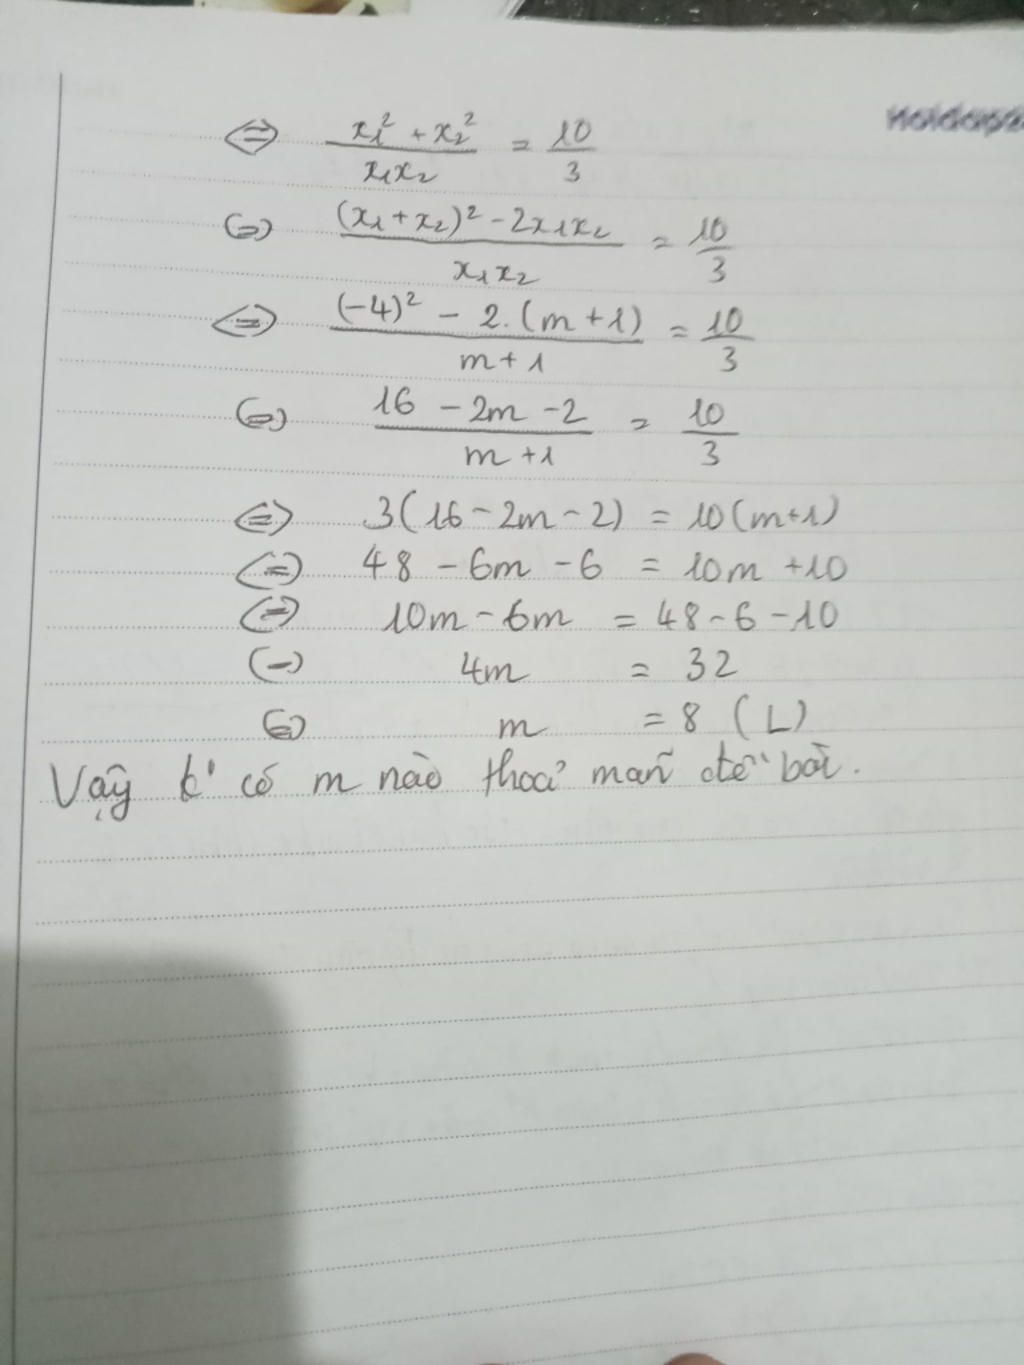 ⇔ (x₁² + x₂²)/(x₁x₂) = 10/3
⇔ ((x₁ + x₂)² - 2x₁x₂)/(x₁x₂) = 10/3
⇔ ((-4)² - 2.(m + 1))/(m + 1) = 10/3
⇔ (16 - 2m - 2)/(m + 1) = 10/3
⇔ 3(16 - 2m - 2) = 10(m+1)
⇔ 48 - 6m - 6 = 10m + 10
⇔ 10m - 6m = 48 - 6 - 10
⇔ 4m = 32
⇔ m = 8 (L)
Vậy k' có m nào thoả mãn đề bài.